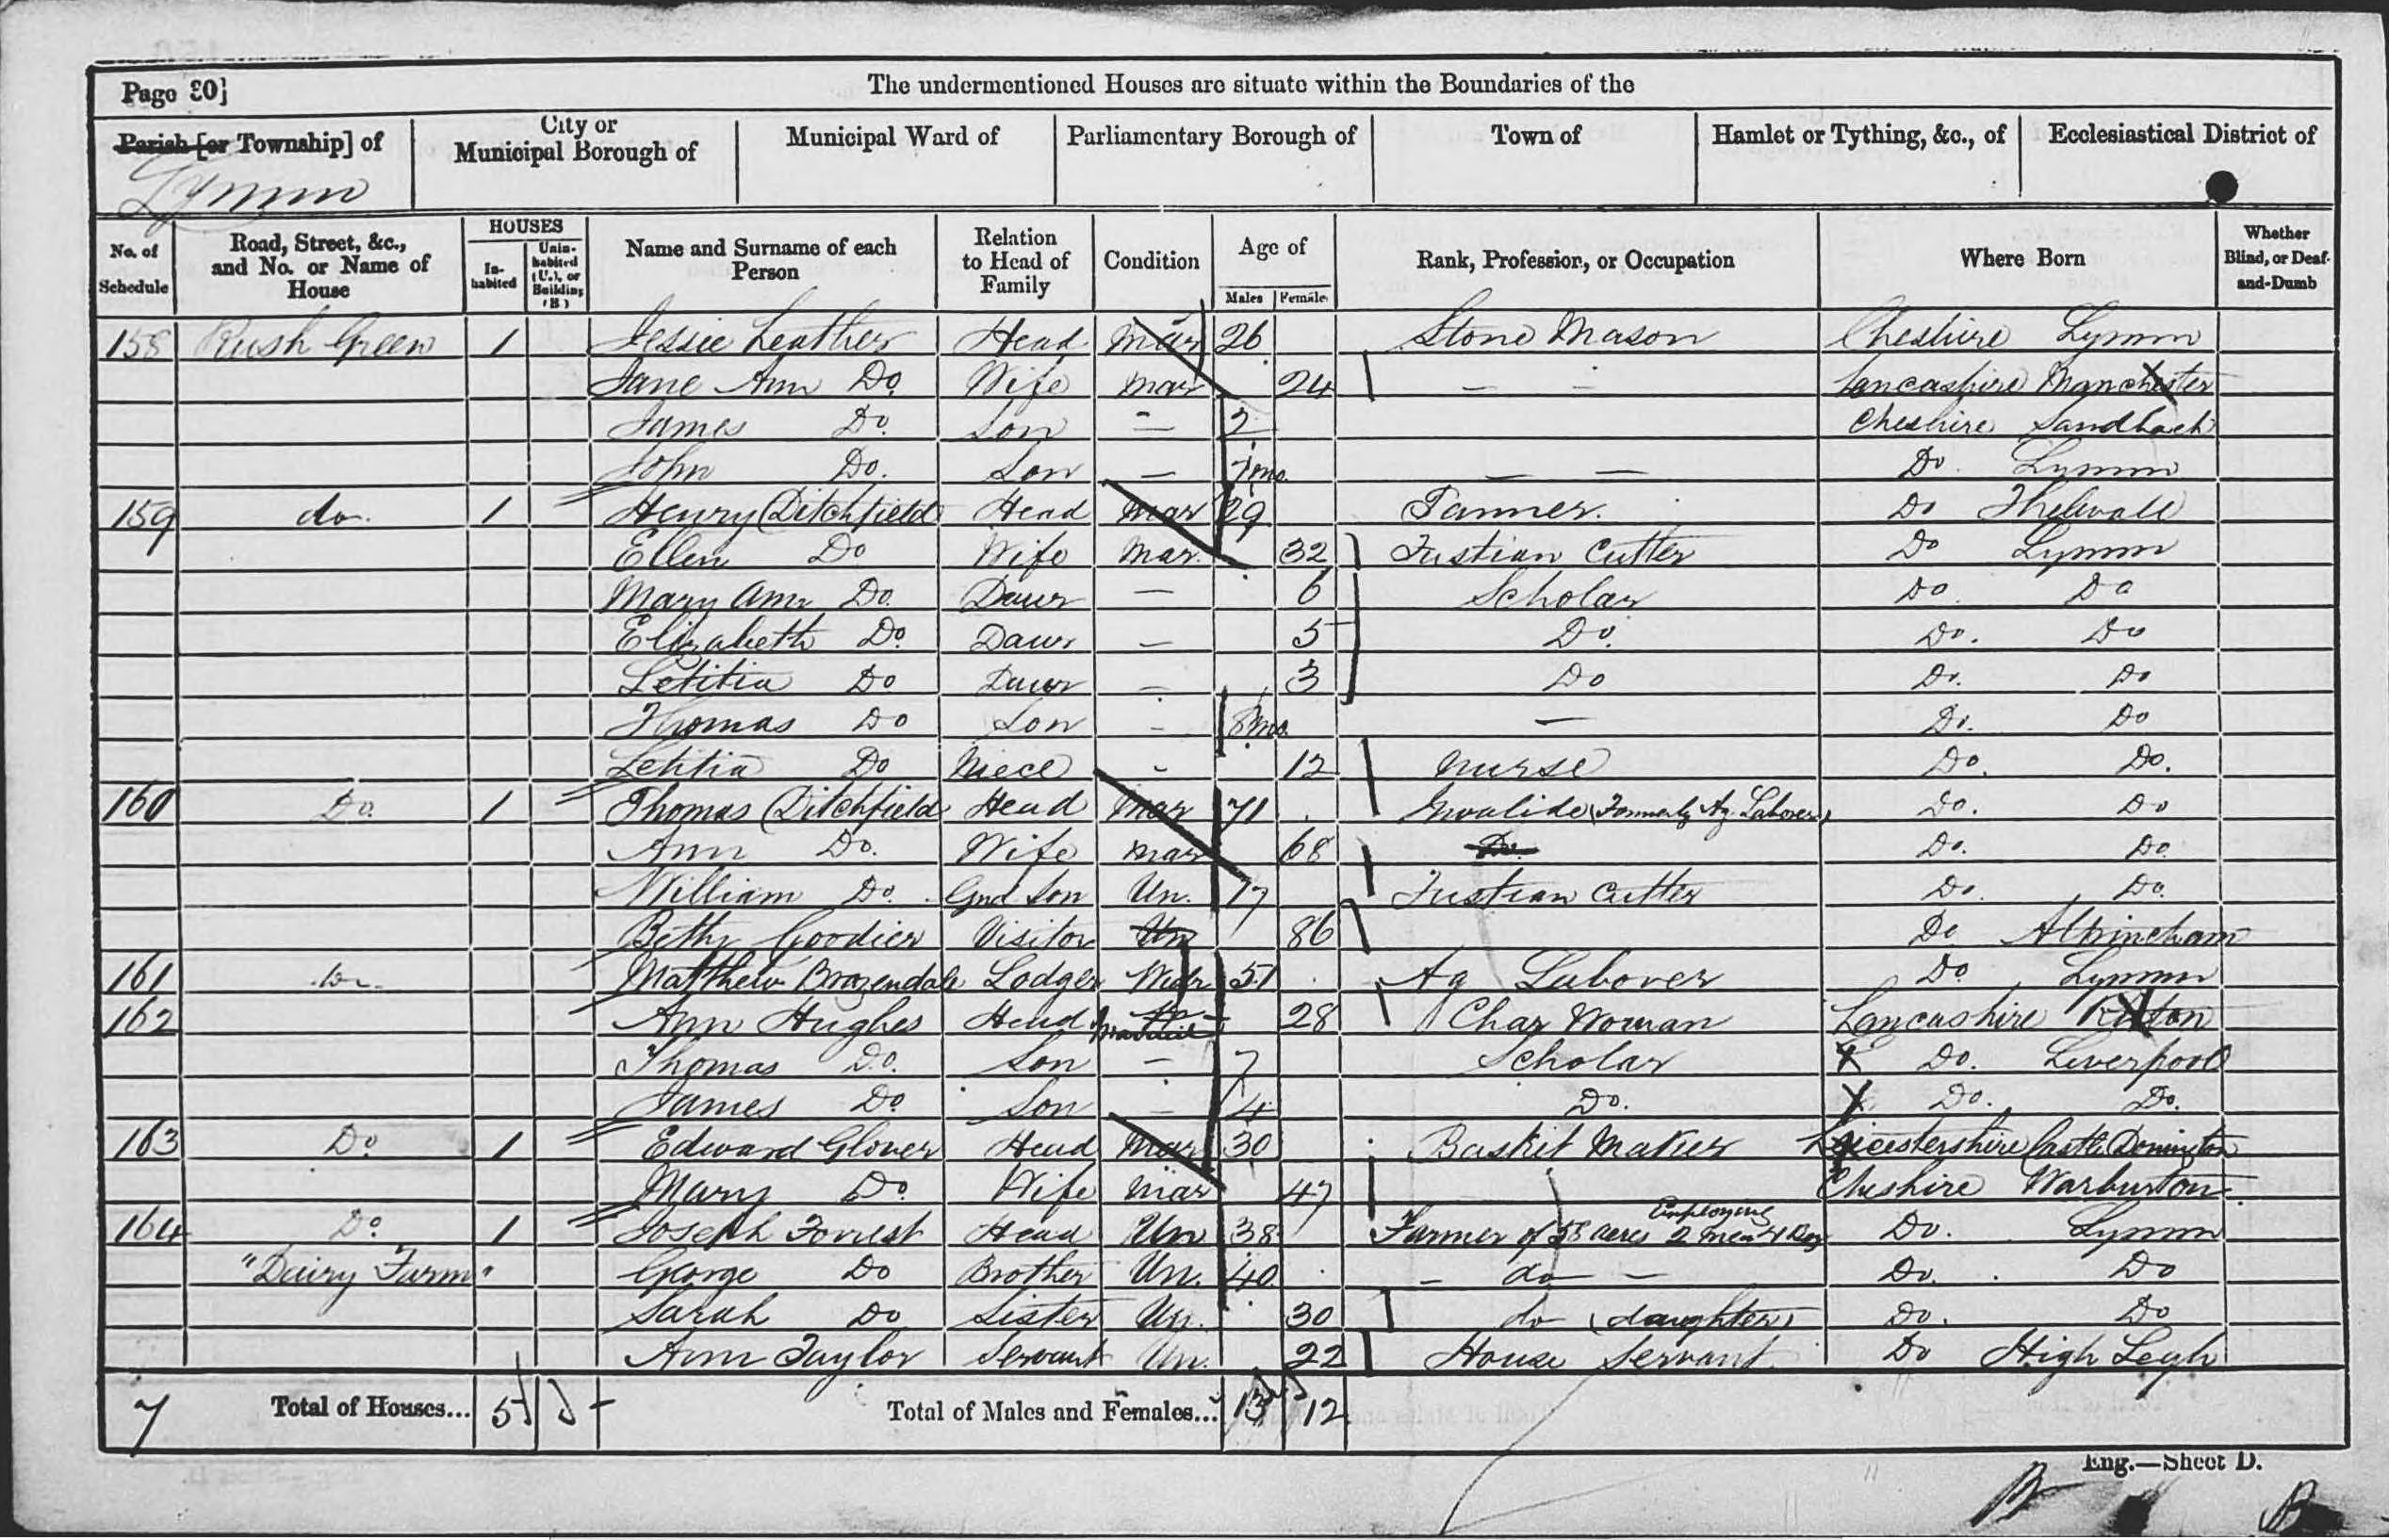 Page 30]
The undermentioned Houses are situate within the Boundaries of the
Parish [or Township] of
City or Municipal Borough of
Municipal Ward of
Parliamentary Borough of
Town of
Hamlet or Tything, &c., of
Ecclesiastical District of
Lymm
No. of Schedule
Road, Street, &c., and No. or Name of House
HOUSES
In-habited
Unin-habited (U.), or Building (B)
Name and Surname of each Person
Relation to Head of Family
Condition
Age of
Males
Females
Rank, Profession, or Occupation
Where Born
Whether Blind, or Deaf-and-Dumb
158 Rush Green 1 Jessie Leather Head Mar 26 Stone Mason Cheshire Lymm
Jane Ann Do. Wife Mar 24 Lancashire Manchester
James Do. Son — 2 Cheshire Sandbach
John Do. Son — 7mo. — — Do. Lymm
159 do. 1 Henry Ditchfield Head Mar 29 Tanner. Do Thelwall
Ellen Do Wife Mar. 32 Fustian Cutter Do Lymm
Mary Ann Do. Daur — 6 Scholar Do. Do
Elizabeth Do. Daur — 5 Do. Do. Do
Letitia Do Daur — 3 Do Do. Do
Thomas Do Son - 8mo. — Do. Do
Letitia Do Niece - 12 Nurse Do. Do.
160 Do. 1 Thomas Ditchfield Head Mar 71 Invalide (Formerly Ag. Laborer) Do. Do
Ann Do. Wife Mar 68 Do. Do. Do.
William Do. Gnd Son Un. 17 Fustian Cutter Do. Do.
Betty Goodier Visitor Un 86 Do Altrincham
161 Do. Matthew Brazendale Lodger Widr 51 Ag Laborer Do. Lymm
162 Ann Hughes Head Married 28 Char Woman Lancashire
Thomas Do. Son — 7 Scholar Do. Liverpool
James Do Son — 4 Do. Do. Do.
163 Do. 1 Edward Glover Head Mar 30 Baskit Maker Leicestershire Castle Donington
Mary Do. Wife Mar 47 Cheshire Warburton
164 Do. 1 Joseph Forrest Head Un 38 Farmer of 58 acres Employing 2 men & 1 Boy Do. Lymm
"Dairy Farm" George Do Brother Un. 40 — do — Do. Do
Sarah Do Sister Un. 30 do (daughter) Do. Do
Ann Taylor Servant Un. 22 House Servant Do High Legh
7 Total of Houses... 5 Total of Males and Females... 13 12
Eng.—Sheet D.